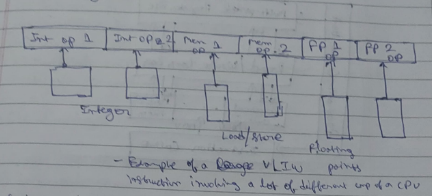 Int op 1 Int op 2 Mem op 1 Mem op 2 FP op 1 FP op 2
Integer
Load/Store
Floating points
- Example of a VLIW
instruction involving a lot of different of a CPU